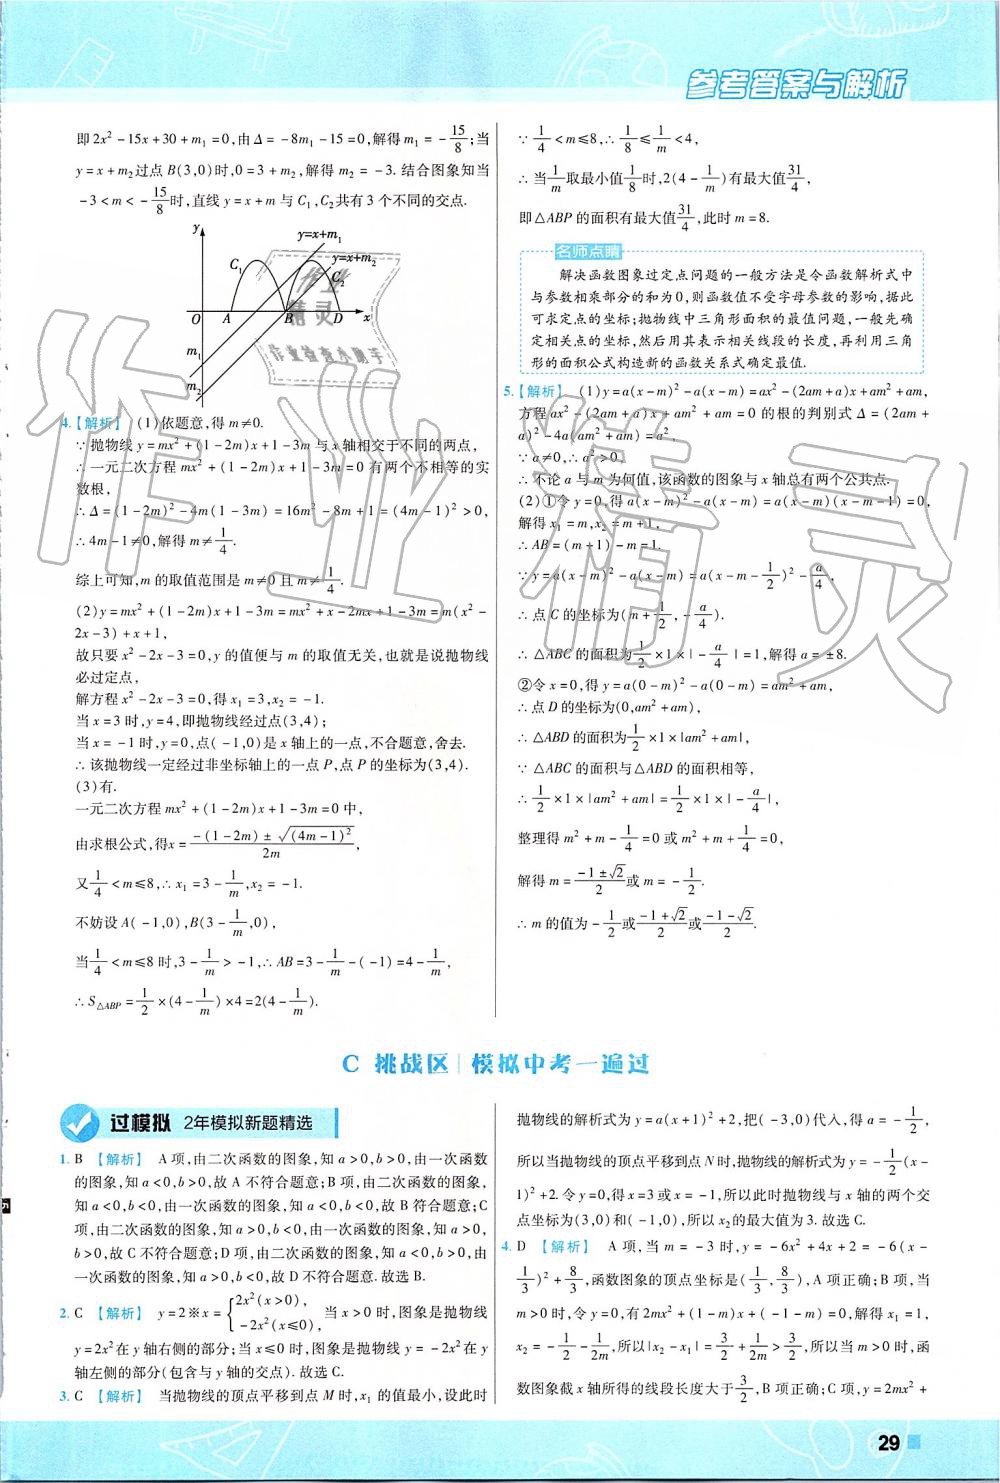 参考答案与解析
即2x²-15x+30+m₁=0,由Δ=-8m₁-15=0,解得m₁=-15/8;当
y=x+m₂过点B(3,0)时,0=3+m₂,解得m₂=-3.结合图象知当
-3<m<-15/8时,直线y=x+m与C₁,C₂共有3个不同的交点.
y
y=x+m₁
y=x+m₂
C₁
C₂
O A B D x
m₁
m₂
4.【解析】 (1)依题意,得m≠0.
∵抛物线y=mx²+(1-2m)x+1-3m与x轴相交于不同的两点,
∴一元二次方程mx²+(1-2m)x+1-3m=0有两个不相等的实
数根,
∴Δ=(1-2m)²-4m(1-3m)=16m²-8m+1=(4m-1)²>0,
∴4m-1≠0,解得m≠1/4.
综上可知,m的取值范围是m≠0且m≠1/4.
(2)y=mx²+(1-2m)x+1-3m=mx²+x-2mx+1-3m=m(x²-
2x-3)+x+1,
故只要x²-2x-3=0,y的值便与m的取值无关,也就是说抛物线
必过定点,
解方程x²-2x-3=0,得x₁=3,x₂=-1.
当x=3时,y=4,即抛物线经过点(3,4);
当x=-1时,y=0,点(-1,0)是x轴上的一点,不合题意,舍去.
∴该抛物线一定经过非坐标轴上的一点P,点P的坐标为(3,4).
(3)有.
一元二次方程mx²+(1-2m)x+1-3m=0中,
由求根公式,得x=(-(1-2m)±√(4m-1)²)/2m,
又1/4<m≤8,∴x₁=3-1/m,x₂=-1.
不妨设A(-1,0),B(3-1/m,0),
当1/4<m≤8时,3-1/m>-1,∴AB=3-1/m-(-1)=4-1/m,
∴S△ABP=1/2×(4-1/m)×4=2(4-1/m).
∵1/4<m≤8,∴1/8≤1/m<4,
∴当1/m取最小值1/8时,2(4-1/m)有最大值31/4,
即△ABP的面积有最大值31/4,此时m=8.
名师点睛
解决函数图象过定点问题的一般方法是令函数解析式中
与参数相乘部分的和为0,则函数值不受字母参数的影响,据此
可求定点的坐标;抛物线中三角形面积的最值问题,一般先确
定相关点的坐标,然后用其表示相关线段的长度,再利用三角
形的面积公式构造新的函数关系式确定最值.
5.【解析】 (1)y=a(x-m)²-a(x-m)=ax²-(2am+a)x+am²+am,
方程ax²-(2am+a)x+am²+am=0的根的判别式Δ=(2am+
a)²-4a(am²+am)=a²,
∵a≠0,∴a²>0,
∴不论a与m为何值,该函数的图象与x轴总有两个公共点.
(2)①令y=0,得a(x-m)²-a(x-m)=a(x-m)(x-m-1)=0,
解得x₁=m,x₂=m+1,
∴AB=(m+1)-m=1.
∵y=a(x-m)²-a(x-m)=a(x-m-1/2)²-a/4,
∴点C的坐标为(m+1/2,-a/4).
∴△ABC的面积为1/2×1×|-a/4|=1,解得a=±8.
②令x=0,得y=a(0-m)²-a(0-m)=am²+am,
∴点D的坐标为(0,am²+am),
∴△ABD的面积为1/2×1×|am²+am|,
∵△ABC的面积与△ABD的面积相等,
∴1/2×1×|am²+am|=1/2×1×|-a/4|,
整理得m²+m-1/4=0或m²+m+1/4=0,
解得m=(-1±√2)/2或m=-1/2.
∴m的值为-1/2或(-1+√2)/2或(-1-√2)/2.
C 挑战区 模拟中考一遍过
过模拟 2年模拟新题精选
1. B 【解析】 A项,由二次函数的图象,知a>0,b>0,由一次函数
的图象,知a>0,b<0,故A不符合题意;B项,由二次函数的图象,
知a<0,b<0,由一次函数的图象,知a<0,b<0,故B符合题意;C
项,由二次函数的图象,知a>0,b<0,由一次函数的图象,知a>0,
b>0,故C不符合题意;D项,由二次函数的图象,知a<0,b<0,由
一次函数的图象,知a>0,b<0,故D不符合题意.故选B.
2. C 【解析】 y=2※x={2x²(x>0), -2x²(x≤0), 当x>0时,图象是抛物线
y=2x²在y轴右侧的部分;当x≤0时,图象是抛物线y=-2x²在y
轴左侧的部分(包含与y轴的交点).故选C.
3. C 【解析】 当抛物线的顶点平移到点M时,x₁的值最小,设此时
抛物线的解析式为y=a(x+1)²+2,把(-3,0)代入,得a=-1/2,
所以当抛物线的顶点平移到点N时,抛物线的解析式为y=-1/2(x-
1)²+2.令y=0,得x=3或x=-1,所以此时抛物线与x轴的两个交
点坐标为(3,0)和(-1,0),所以x₂的最大值为3.故选C.
4. D 【解析】 A项,当m=-3时,y=-6x²+4x+2=-6(x-
1/3)²+8/3,函数图象的顶点坐标是(1/3,8/3),A项正确;B项,当
m>0时,令y=0,有2mx²+(1-m)x+(-1-m)=0,解得x₁=1,
x₂=-1/2-1/2m,所以|x₂-x₁|=3/2+1/2m>3/2,所以当m>0时,函
数图象截x轴所得的线段长度大于3/2,B项正确;C项,y=2mx²+
29
作业精灵
作业
精灵
作业检查小助手